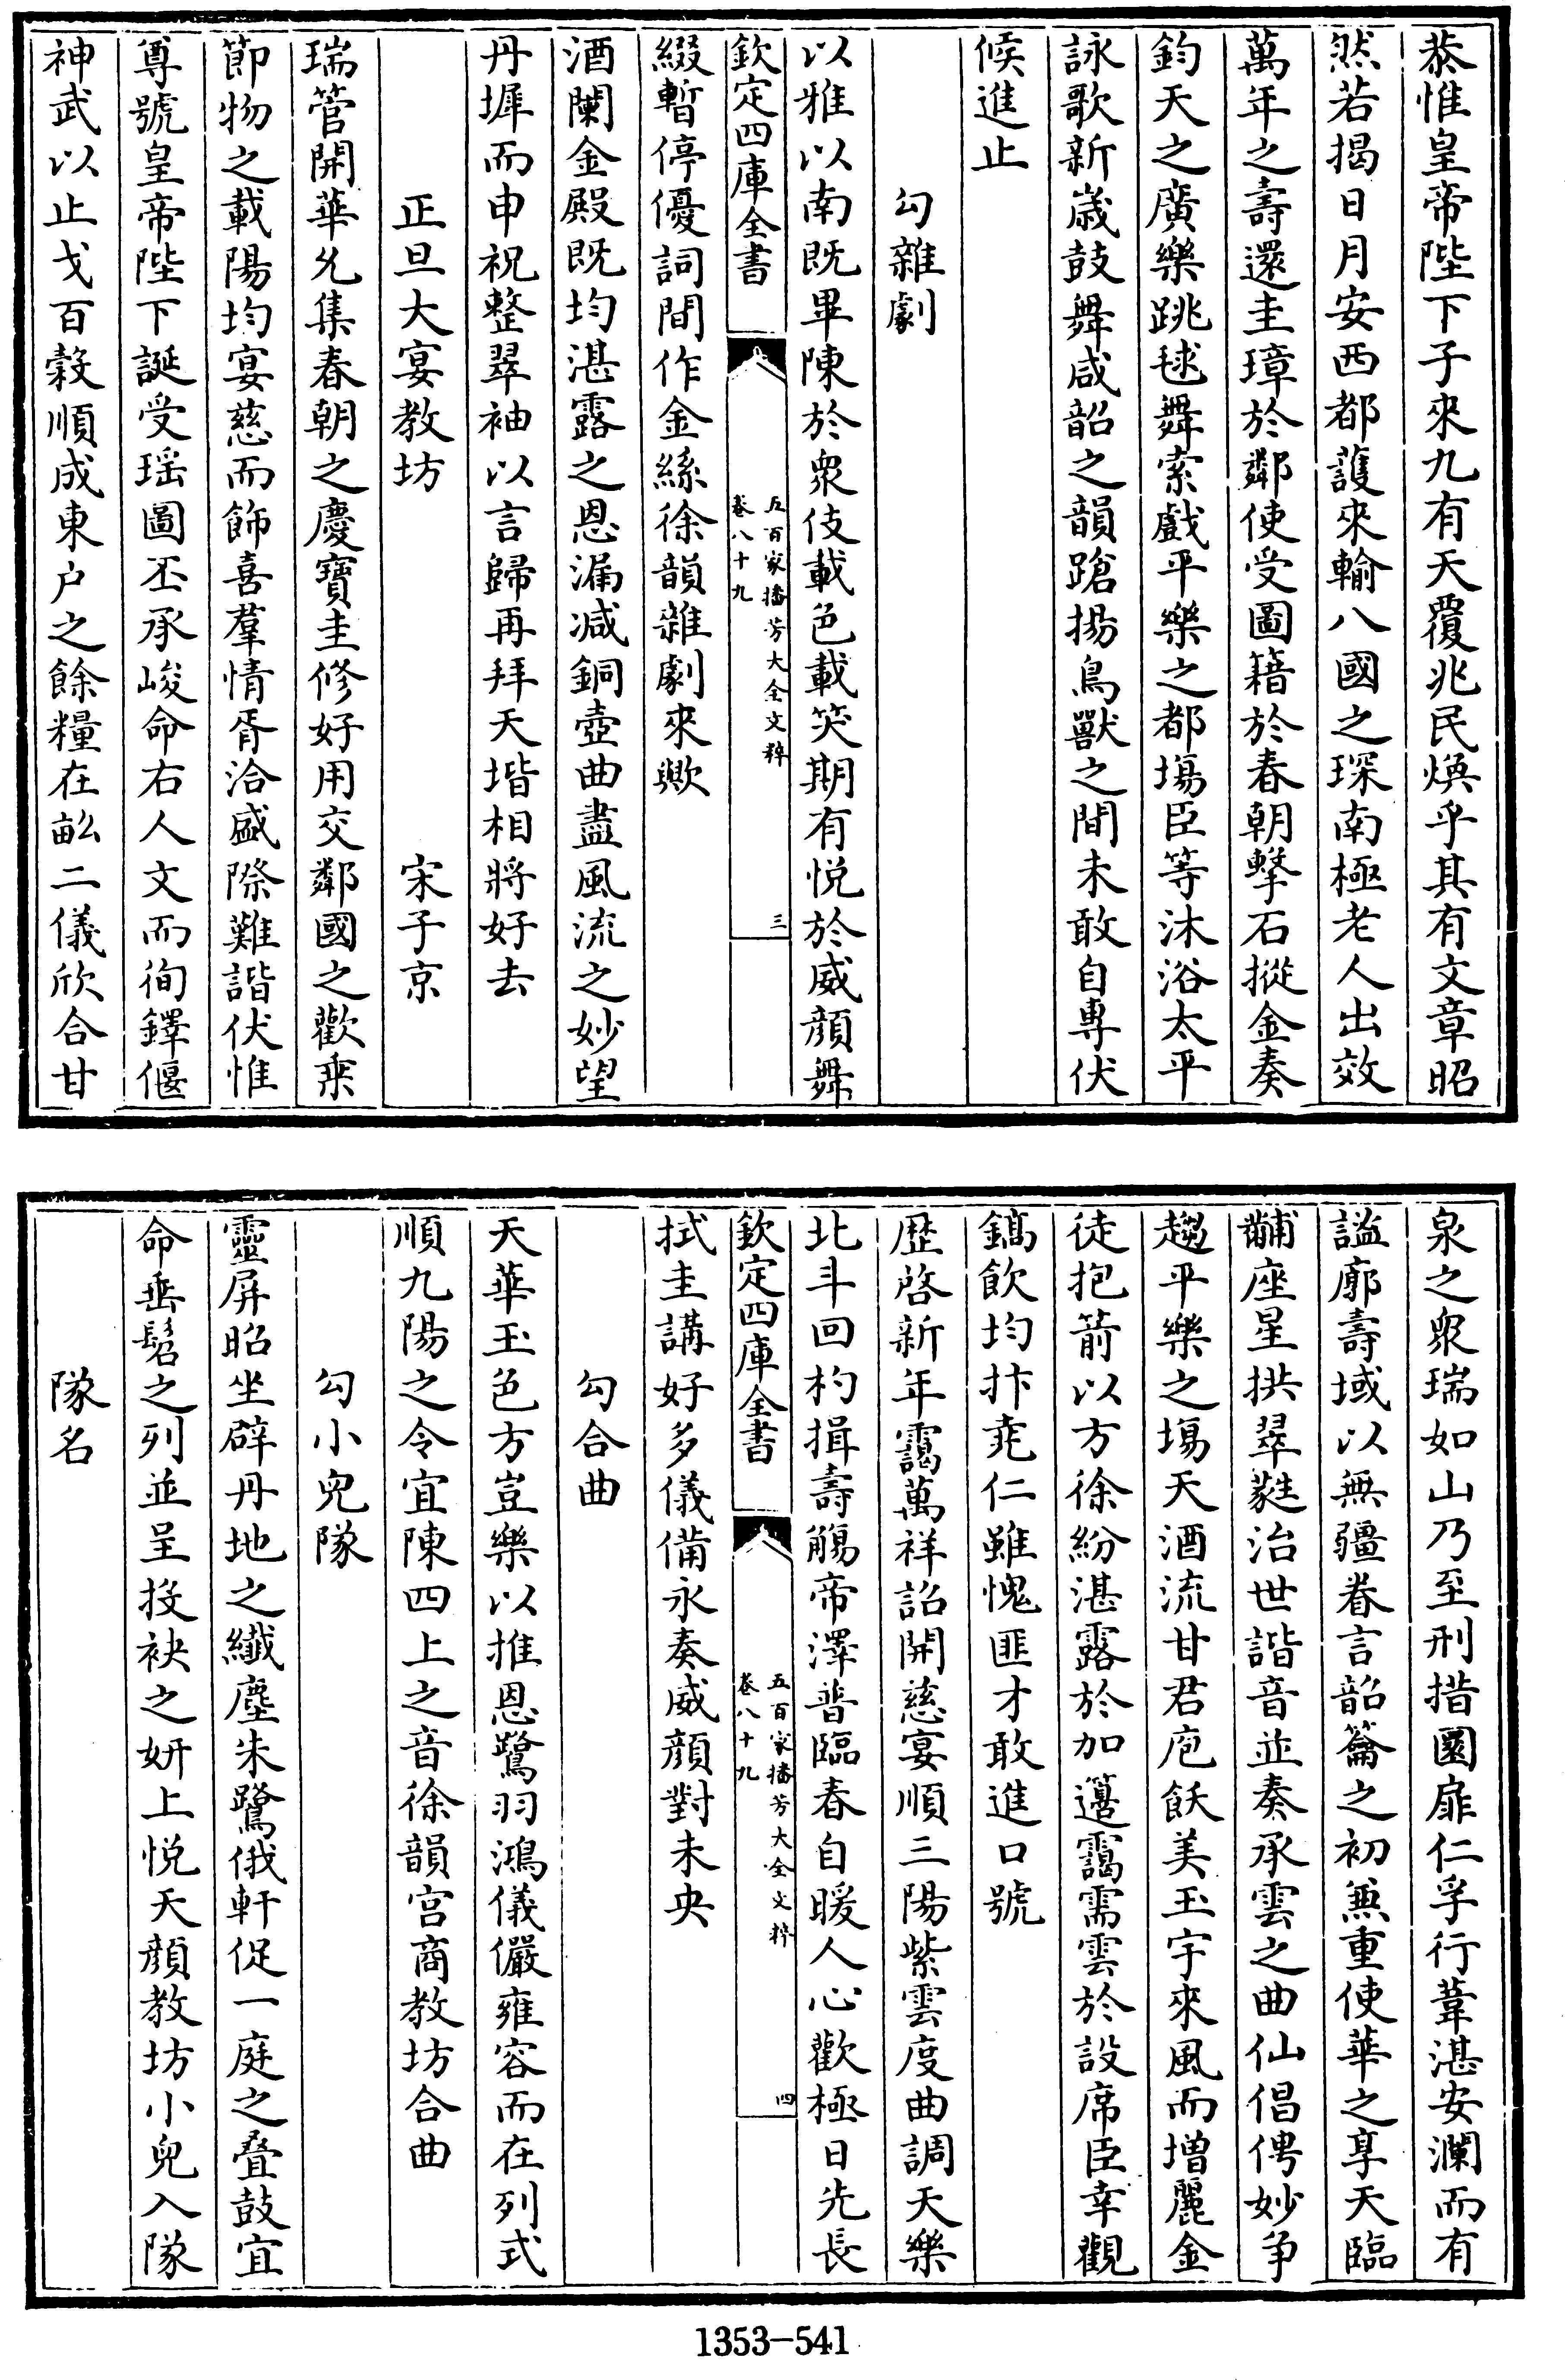 恭惟皇帝陛下子來九有天覆兆民煥乎其有文章昭
然若揭日月安西都護來輸八國之琛南極老人出效
萬年之壽還圭璋於鄰使受圖籍於春朝擊石摐金奏
鈞天之廣樂跳毬舞索戲平樂之都場臣等沐浴太平
詠歌新歳鼓舞咸韶之韻蹌揚鳥獸之間未敢自專伏
候進止
勾雜劇
以雅以南既畢陳於衆伎載色載笑期有悅於威顔舞
欽定四庫全書
五百家播芳大全文粹
卷八十九
三
綴暫停優詞間作金絲徐韻雜劇來歟
酒闌金殿既均湛露之恩漏減銅壺曲盡風流之妙望
丹墀而申祝整翠袖以言歸再拜天堦相將好去
正旦大宴教坊 宋子京
瑞管開華允集春朝之慶寶圭修好用交鄰國之歡乘
節物之載陽均宴慈而飾喜羣情胥洽盛際難諧伏惟
尊號皇帝陛下誕受瑶圖丕承峻命右人文而徇鐸偃
神武以止戈百穀順成東户之餘糧在畝二儀欣合甘
泉之衆瑞如山乃至刑措圜扉仁孚行葦湛安瀾而有
謐廓壽域以無疆眷言韶籥之初兼重使華之享天臨
黼座星拱翠蕤治世諧音並奏承雲之曲仙倡俜妙争
趨平樂之場天酒流甘君庖飫美玉宇來風而增麗金
徒抱箭以方徐紛湛露於加籩靄需雲於設席臣幸觀
鎬飲均抃堯仁雖愧匪才敢進口號
歴啓新年靄萬祥詔開慈宴順三陽紫雲度曲調天樂
北斗回杓揖壽觴帝澤普臨春自暖人心歡極日先長
欽定四庫全書
五百家播芳大全文粹
卷八十九
四
拭圭講好多儀備永奏威顔對未央
勾合曲
天華玉色方豈樂以推恩鷺羽鴻儀儼雍容而在列式
順九陽之令宜陳四上之音徐韻宫商教坊合曲
勾小兒隊
靈屏昭坐辟丹地之纖塵朱鷺俄軒促一庭之疊鼓宜
命垂髫之列並呈投袂之妍上悅天顔教坊小兒入隊
隊名
1353-541